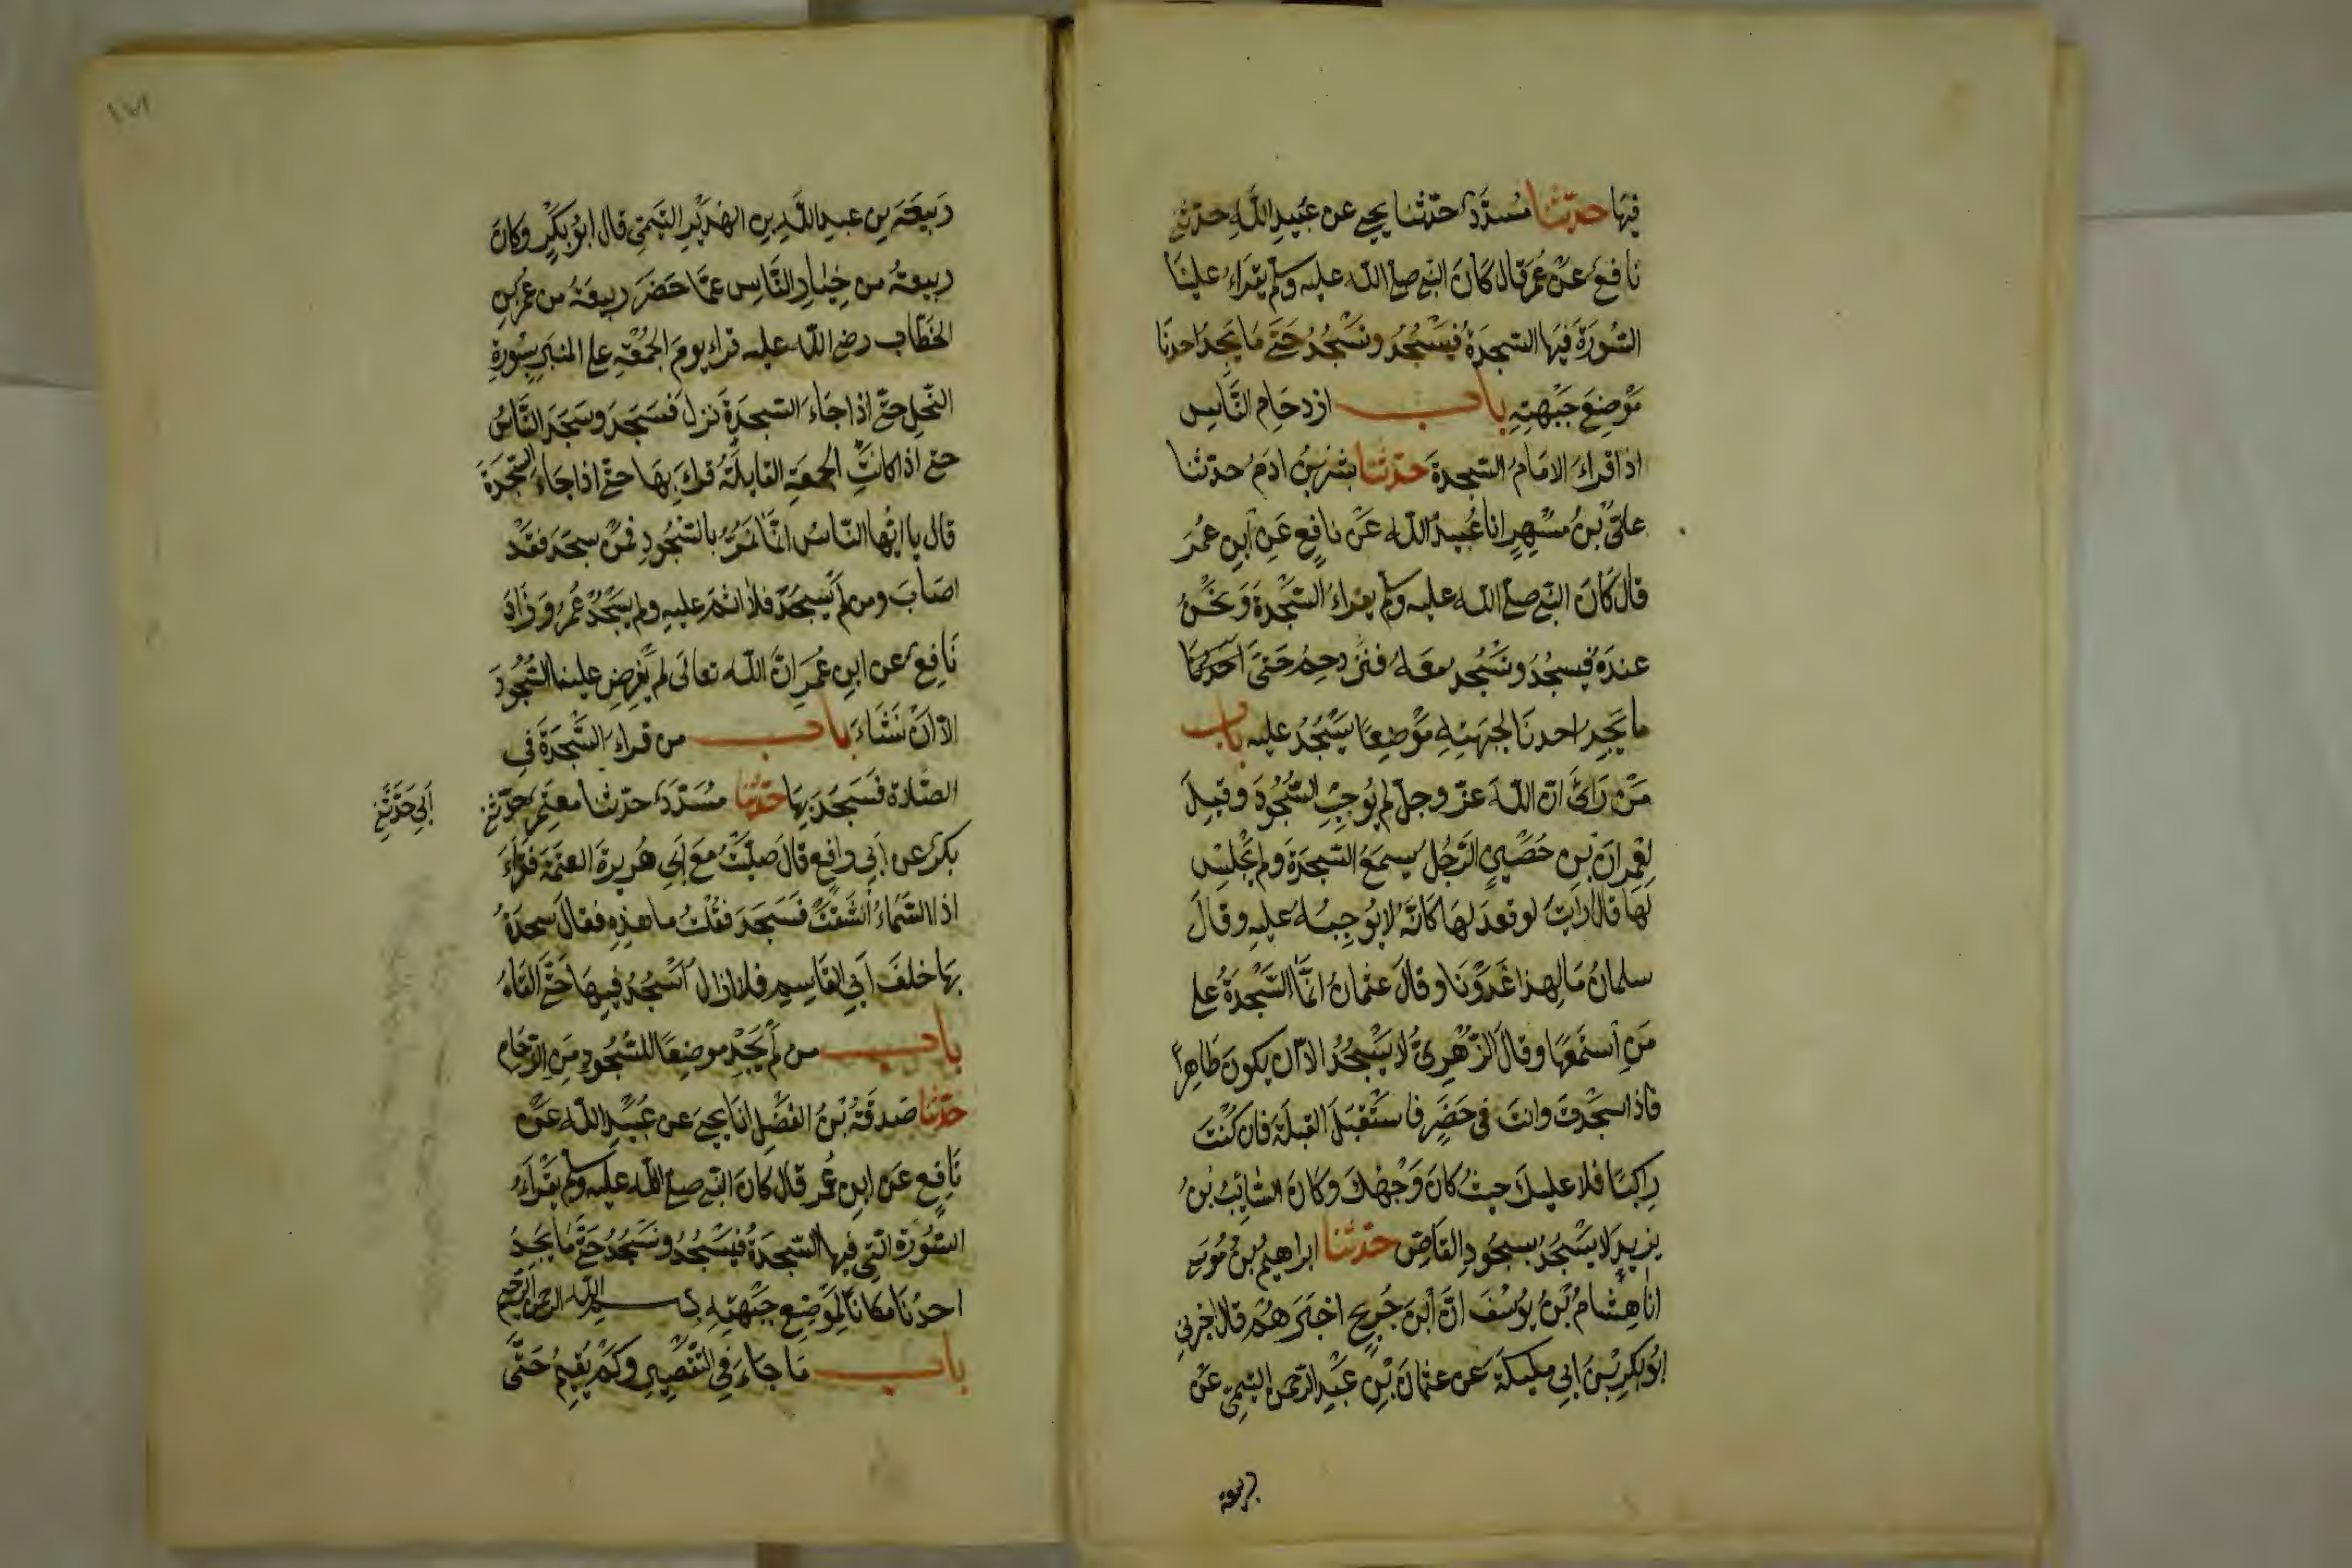 فِيهَا حدّثنا مُسدَّدٌ حدّثنا يحيى عن عُبَيدِ اللّهِ حدّثني
نافعٌ عَنْ عُمَرَ قال كَانَ النبي صلى اللّه عليه وسلم يقراءُ علينَا
السُّورَةَ فِيهَا السَّجدَةُ فيَسْجُدُ ونَسْجُدُ حَتّى مَا يَجِدُ احدنَا
مَوْضِعَ جَبْهتِهِ باب ازدحَامِ النَّاسِ
اذا قراءَ الامَامُ السّجدةَ حدّثنا بشرُ بنُ ادَمَ حدّثنا
علىّ بْنُ مسْهِرٍ انا عُبيدُ اللّه عَنْ نافِعٍ عَنِ ابنِ عُمَرَ
قال كَانَ النبي صلى اللّه عليه وسلم يقراءُ السَّجْدةَ وَنَحْنُ
عندَهُ فيسجُدُ ونَسْجُد معَهُ فنزْدحِمُ حَتىَّ احَدُنَا
ما يَجِدُ احدنَا لجبهَتِهِ مَوْضِعًا يَسْجُدُ عليه باب
مَنْ رَاىَ انّ اللّهَ عزّ وجلّ لم يُوجِبِ السُّجُودَ وقيلَ
لِعِمْرانَ بْنِ حُصَيْنٍ الرَّجُلُ يسمَعُ السّجدَةَ ولم يَجْلِسْ
لَهَا قال ارَاَيْتَ لو قعدَ لهَا كَانّهُ لا يُوجِبُهُ عليهِ وقالَ
سلمانُ مَا لِهذا غَدَوْنَا وقالَ عثمانُ انّمَا السَّجْدَةُ على
مَنِ اسْتمَعَهَا وقالَ الزُّهْرِىُّ لا يَسْجُدُ الّا ان يكونَ طَاهِرًا
فاذا سجَدْتَ وانتَ فى حَضَرٍ فاسْتَقْبَلِ القِبلَةَ فان كُنْتَ
رَاكبًا فلا عليكَ حيثُ كانَ وَجْهُكَ وكَانَ السَّائِبُ بْنُ
يزيدَ لا يَسْجُدُ بسجُودِ القَاصّ حدّثنا ابراهيمُ بنُ مُوسَى
انا هِشَامُ بْنُ يُوسُفَ انَّ ابْنَ جُرَيجٍ اخْبَرَهُمْ قال اخبرني
ابُو بكرِ بْنُ ابِي مليكَةَ عَن عثمانَ بْنِ عَبْدِ الرّحمنِ التيمِيّ عَنْ
ربيعة
رَبِيعَةَ بنِ عبدِ اللّهِ بنِ الهُدَيْرِ التَّيمِيِّ قال ابُو بَكْرٍ وكانَ
ربيعةُ من خِيَارِ النَّاسِ عمّا حَضَرَ ربيعَةُ من عُمَرَ بْنِ
الخَطّابِ رضي اللّه عليه قراءَ يومَ الجُمُعَةِ على المنبَرِ بِسُورَةِ
النّحلِ حتّى اذا جَاءَ السّجدَةَ نزل فَسَجَدَ وسَجَدَ النَّاسُ
حتى اذا كانتِ الجمعَةِ القابِلَةُ قراءَ بهَا حتّى اذا جَاءَ السّجْدَةَ
قال يا ايُّهَا النّاسُ انّا نَمُرُّ بالسّجُودِ فمَنْ سجدَ فقَدْ
اصَابَ ومن لم يَسجُدْ فلا اثمَ عليهِ ولم يَسْجُدْ عُمَرُ وَزَادَ
نَافِعٌ عن ابنِ عُمَرَ انَّ اللّه تعالَى لم يَفرِضِ علينَا السُّجُودَ
الّا ان نَشَاءَ باب من قراءَ السَّجْدَةَ في
الصّلاة فَسَجَدَ بِهَا حدّثنا مُسَدّدٌ حدّثنا معتمِرٌ حدّثني
ابِي حَدَّثَنِي
بكرٌ عن ابِي رافِعٍ قالَ صلّيْتُ مَعَ ابِي هُريرةَ العتمَةَ فقَرَاءَ
اذا السَّمَاءُ انْشَقَّتْ فَسَجَدَ فقُلْتُ ما هذِهِ فقالَ سجدْتُ
بهَا خلفَ ابِي القَاسِمِ فلا ازال اسْجُدُ فيهَا حَتَّى القَاهُ
باب من لم يَجِدْ موضِعًا للسّجُودِ مِنَ الزّحَامِ
حدّثنا صَدقَةُ بْنُ الفضْلِ انَا يحيى عن عُبَيْدِ اللّهِ عَنْ
نَافِعٍ عَن ابنِ عُمَرَ قال كَانَ النبي صلى اللّه عليه وسلم يَقْرَاءُ
السُّورَةَ الّتِي فيهَا السّجدَةُ فيَسْجُدُ ونَسْجُدُ حَتَّى مَا يَجِدُ
احدُنَا مكَانًا لمَوْضِعِ جَبْهتِهِ بسم اللّه الرحمن الرحيم
باب مَا جاءَ في التَّقْصِيرِ وكَمْ يُقِيمُ حَتَّى